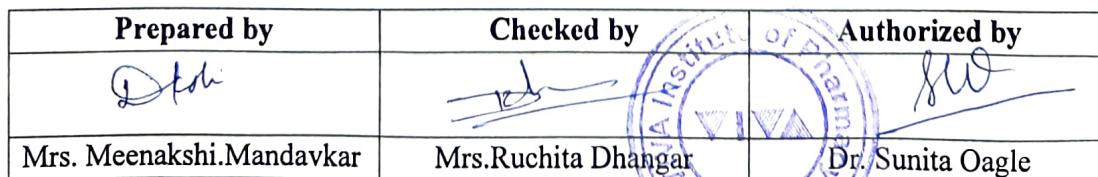 Prepared by Checked by Authorized by
Mrs. Meenakshi.Mandavkar Mrs.Ruchita Dhangar Dr. Sunita Oagle
VIVA Institute of Pharma
VIVA